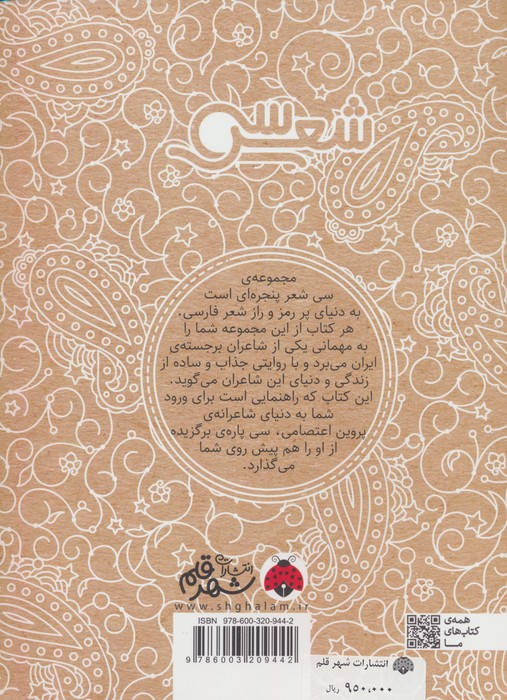 سی شعر
مجموعه‌ی
سی شعر پنجره‌ای است
به دنیای پر رمز و راز شعر فارسی.
هر کتاب از این مجموعه شما را
به مهمانی یکی از شاعران برجسته‌ی
ایران می‌برد و با روایتی جذاب و ساده از
زندگی و دنیای این شاعران می‌گوید.
این کتاب که راهنمایی است برای ورود
شما به دنیای شاعرانه‌ی
پروین اعتصامی، سی پاره‌ی برگزیده
از او را هم پیش روی شما
می‌گذارد.
انتشارات
شهر قلم
www.shghalam.ir
ISBN 978-600-320-944-2
9786003209442
همه‌ی
کتاب‌های
ما
انتشارات شهر قلم
۹۵۰,۰۰۰ ریال